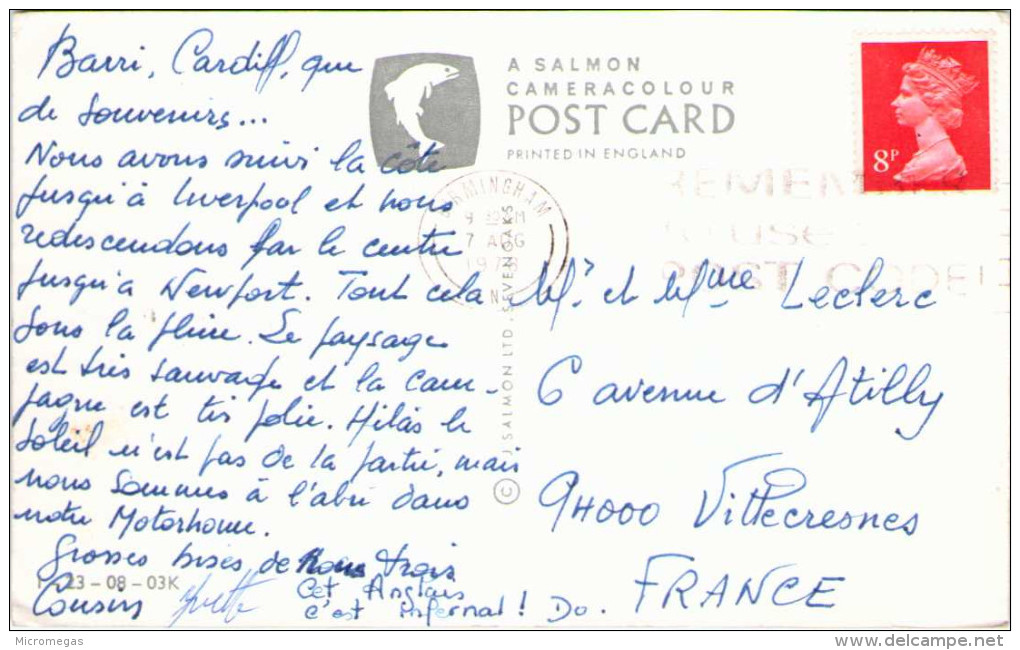 Barri, Cardiff, que
de souvenirs...
Nous avons suivi la côte
jusqu'à Liverpool et nous
redescendons par le centre
jusqu'à Newport. Tout cela
sous la pluie. Le paysage
est très sauvage et la cam-
pagne est très jolie. Hélas le
soleil n'est pas de la partie, mais
nous sommes à l'abri dans
notre Motorhome.
Grosses bises de nous trois
Cousins Yvette
Cet Anglais
c'est infernal! Do.
1-23-08-03K
A SALMON
CAMERACOLOUR
POST CARD
PRINTED IN ENGLAND
© J. SALMON LTD., SEVENOAKS
BIRMINGHAM
7 AUG
1973
8P
REMEMBER
to use
POST CODE
Mr et Mme Leclerc
6 avenue d'Atilly
94000 Villecresnes
FRANCE
Micromegas
delcampe.net